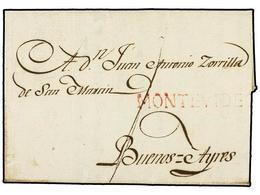 A D.n Juan Antonio Zorrilla
de San Martin
MONTEVIDE
Buenos=Ayres